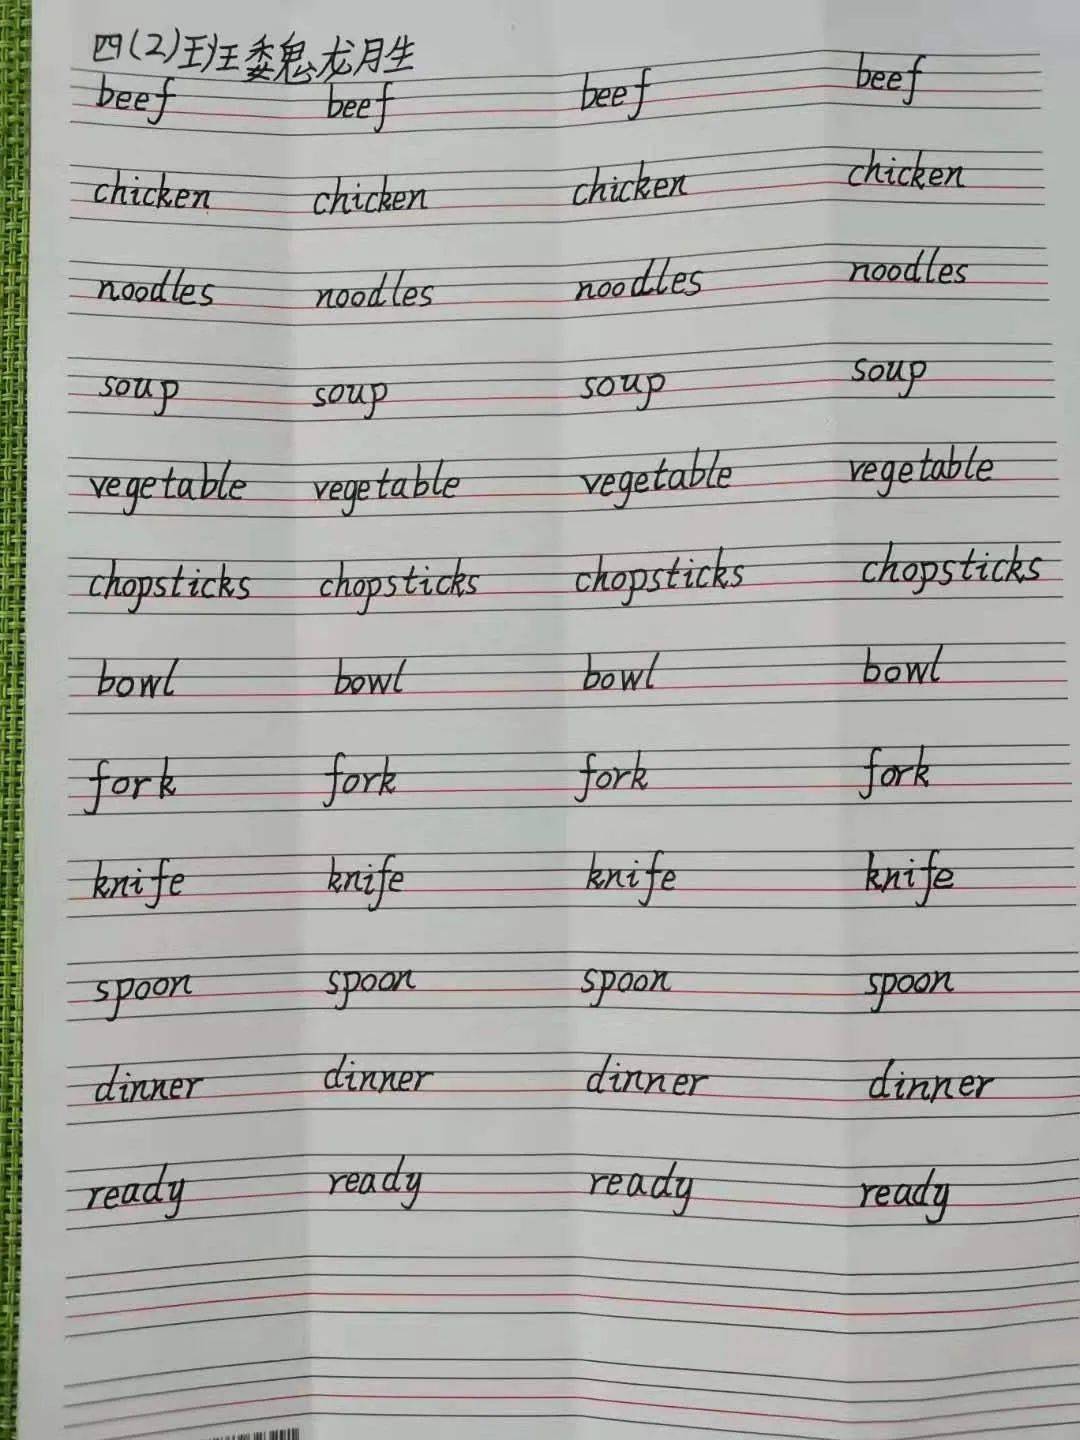 四(2)班魏龙胜
beef beef beef beef
chicken chicken chicken chicken
noodles noodles noodles noodles
soup soup soup soup
vegetable vegetable vegetable vegetable
chopsticks chopsticks chopsticks chopsticks
bowl bowl bowl bowl
fork fork fork fork
knife knife knife knife
spoon spoon spoon spoon
dinner dinner dinner dinner
ready ready ready ready